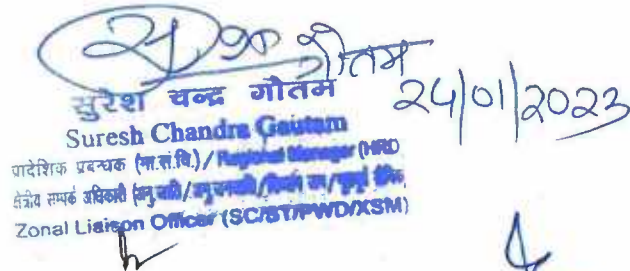 गौतम
24/01/2023
सुरेश चन्द्र गौतम
Suresh Chandra Gautam
प्रादेशिक प्रबन्धक (मा.सं.वि.) / Regional Manager (HRD)
क्षेत्रीय सम्पर्क अधिकारी
Zonal Liaison Officer (SC/ST/PWD/XSM)